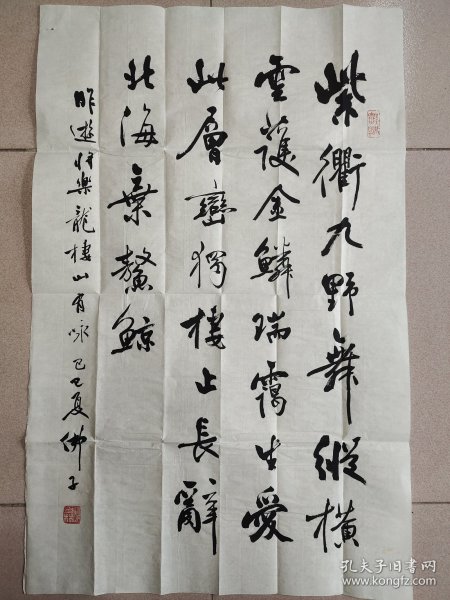 紫衢九野舞縱橫
雲護金鱗瑞靄生愛
此層巒獨棲止長辭
北海棄鰲鯨
昨遊將樂龍棲山有咏 己巳夏佛子
孔夫子旧书网
www.kongfz.com